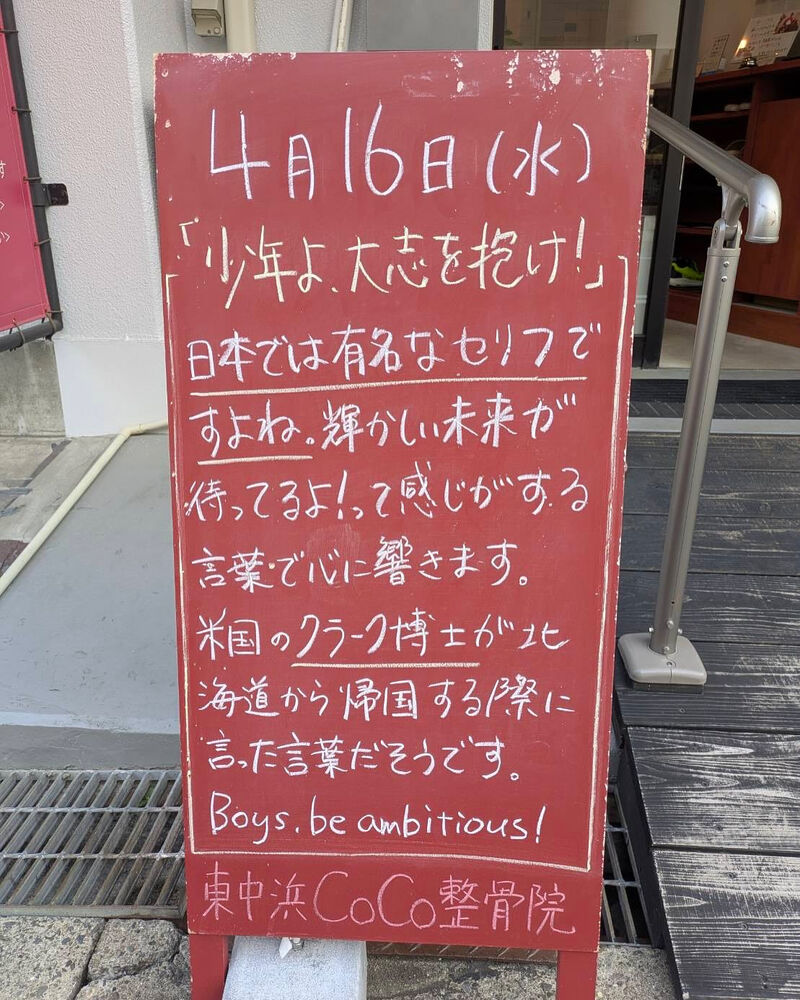 4月16日(水)
「少年よ、大志を抱け!」
日本では有名なセリフで
すよね。輝かしい未来が
待ってるよ!って感じがする
言葉で心に響きます。
米国のクラーク博士が北
海道から帰国する際に
言った言葉だそうです。
Boys, be ambitious!
東中浜CoCo整骨院